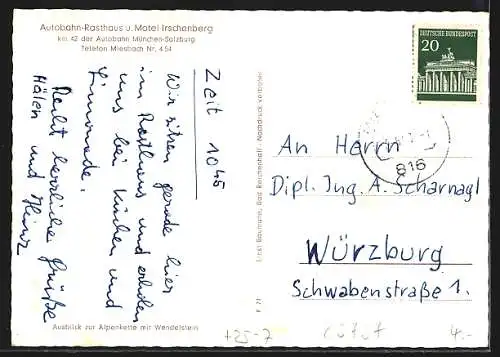 Autobahn-Rasthaus u. Motel Irschenberg
km 42 der Autobahn München-Salzburg
Telefon Miesbach Nr. 454
Zeit 1045
Wir sitzen gerade hier
im Rasthaus und erholen
uns bei Kuchen und
Limonade.
Recht herzliche Grüße
und Heinz
Ausblick zur Alpenkette mit Wendelstein
Ernst Baumann, Bad Reichenhall - Nachdruck verboten
DEUTSCHE BUNDESPOST
20
816
An Herrn
Dipl. Ing. A. Scharnagl
Würzburg
Schwabenstraße 1.
+25-7
4.-